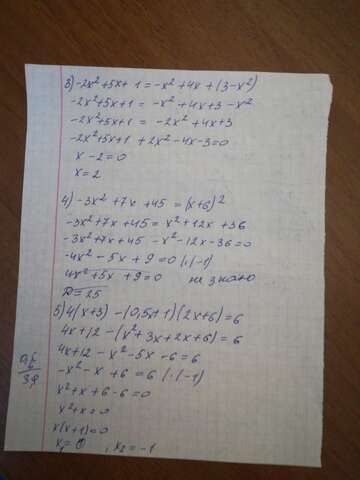 3) -2x² + 5x + 1 = -x² + 4x + (3 - x²)
-2x² + 5x + 1 = -x² + 4x + 3 - x²
-2x² + 5x + 1 = -2x² + 4x + 3
-2x² + 5x + 1 + 2x² - 4x - 3 = 0
x - 2 = 0
x = 2
4) -3x² + 7x + 45 = (x + 6)²
-3x² + 7x + 45 = x² + 12x + 36
-3x² + 7x + 45 - x² - 12x - 36 = 0
-4x² - 5x + 9 = 0 | · (-1)
4x² + 5x + 9 = 0 не знаю
D = 25
5) 4(x + 3) - (0,5x + 1)(2x + 6) = 6
4x + 12 - (x² + 3x + 2x + 6) = 6
4x + 12 - x² - 5x - 6 = 6
-x² - x + 6 = 6 | · (-1)
x² + x + 6 - 6 = 0
x² + x = 0
x(x + 1) = 0
x₁ = 0 , x₂ = -1